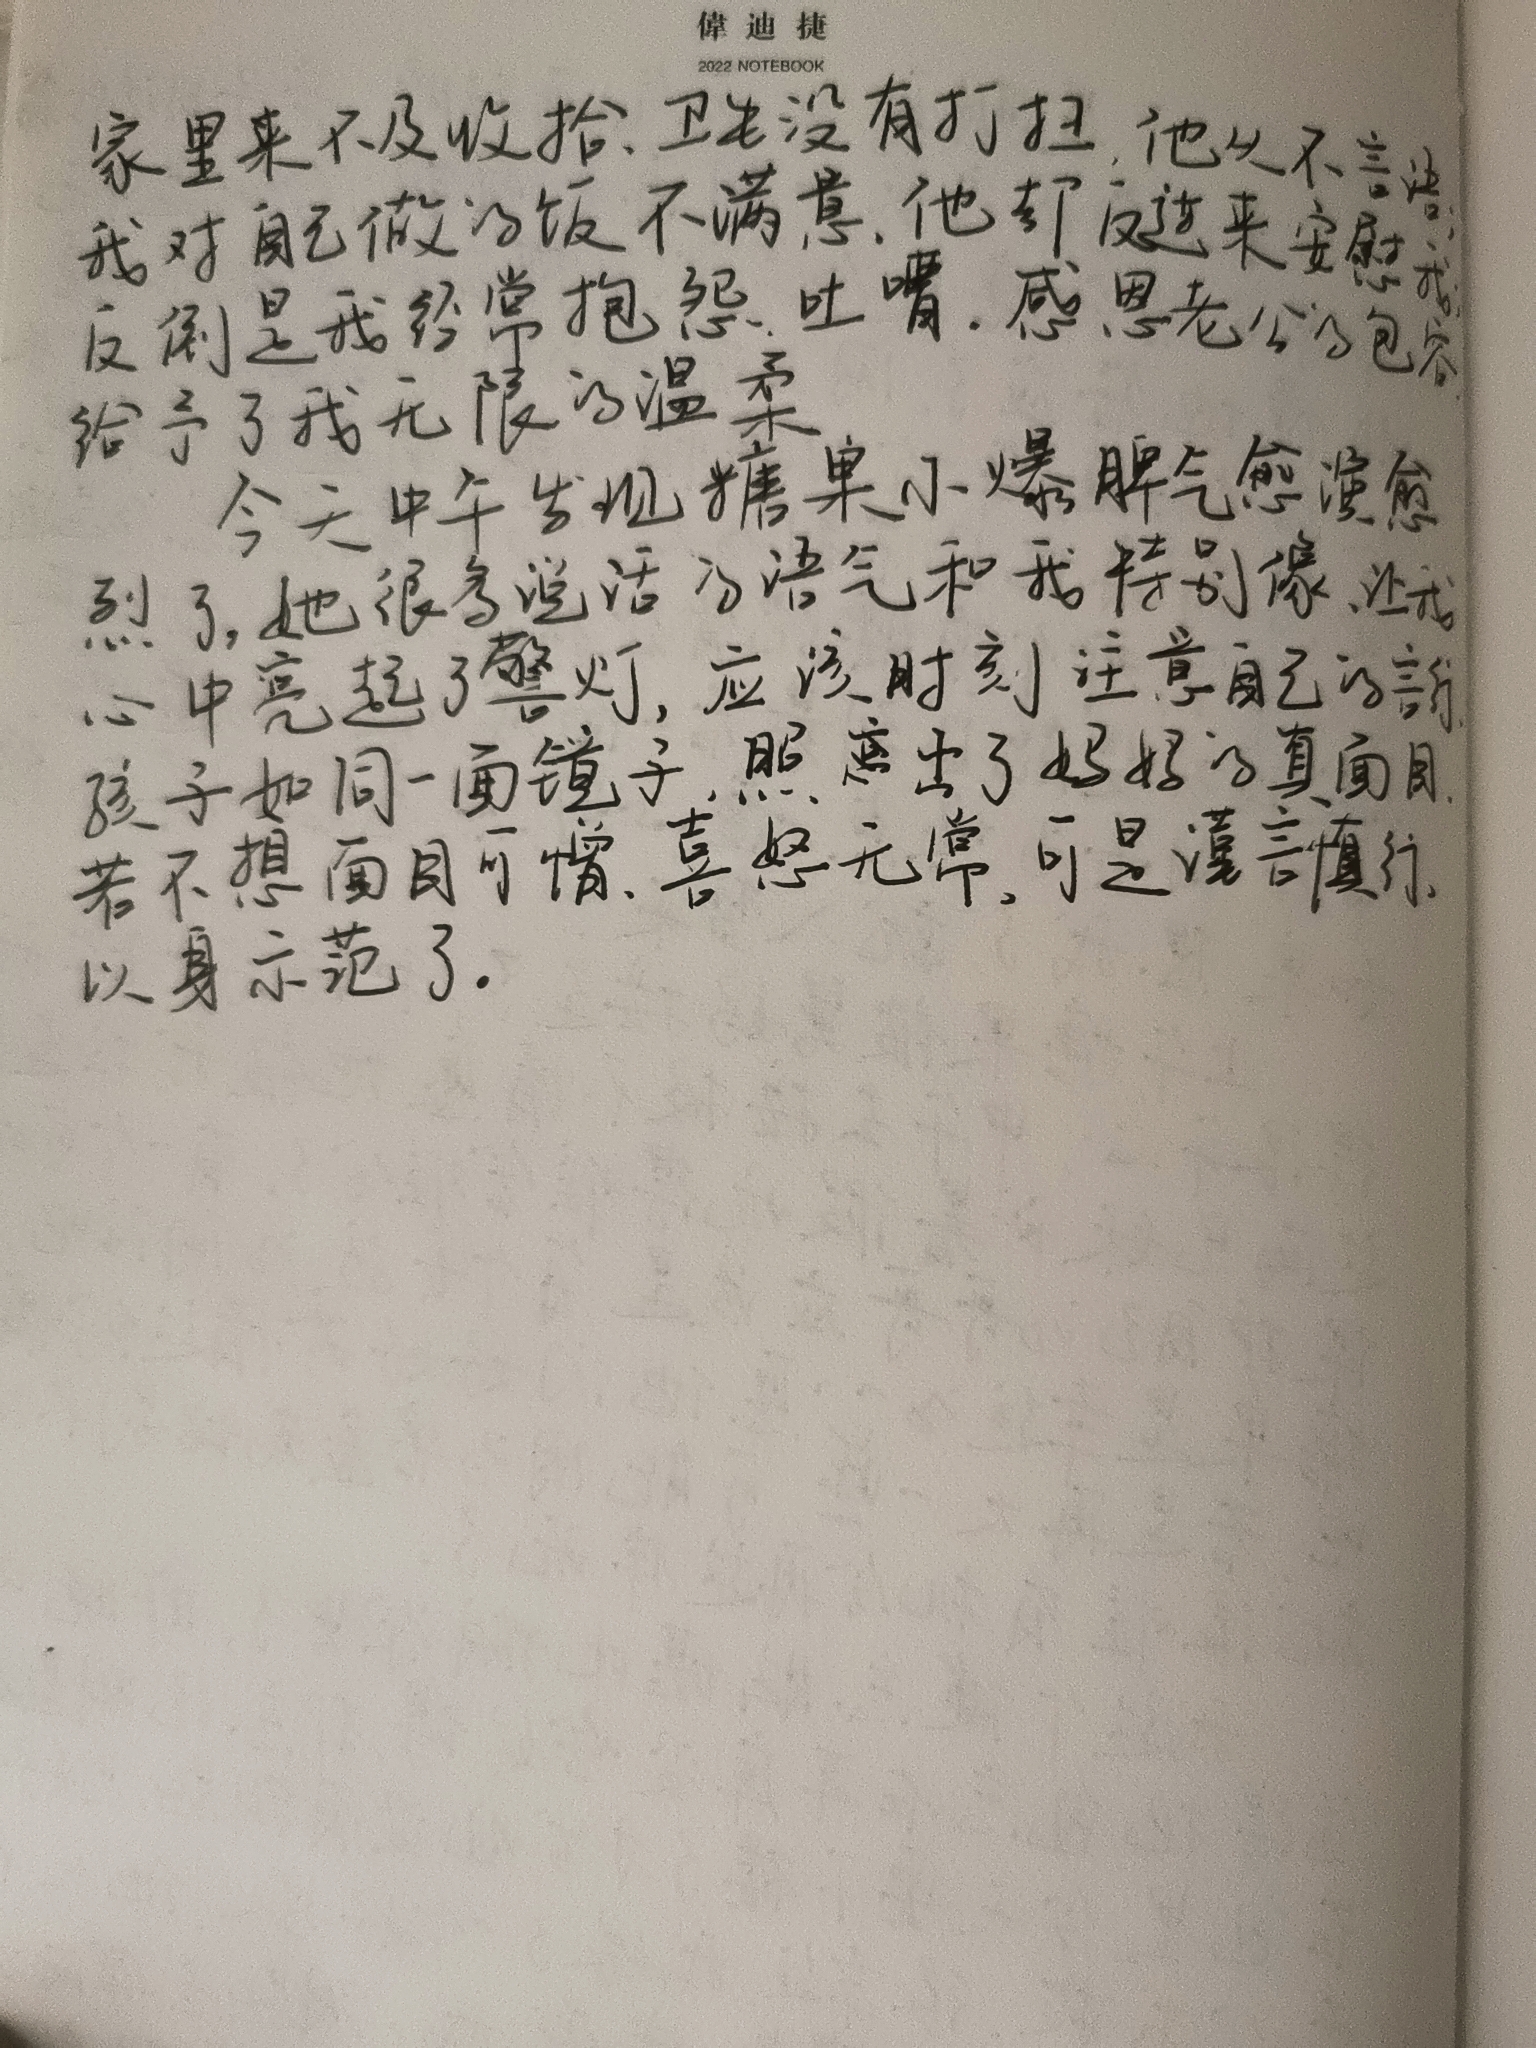 偉迪捷
2022 NOTEBOOK
家里来不及收拾、卫生没有打扫,他从不言语,
我对自己做的饭不满意,他却反过来安慰我,
反倒是我经常抱怨、吐嘈。感恩老公的包容,
给予了我无限的温柔
今天中午发现糖果小爆脾气愈演愈
烈了,她很多说话的语气和我特别像,让我
心中亮起了警灯,应该时刻注意自己的言行,
孩子如同一面镜子,照应出了妈妈的真面目,
若不想面目可憎、喜怒无常,可是谨言慎行、
以身示范了。